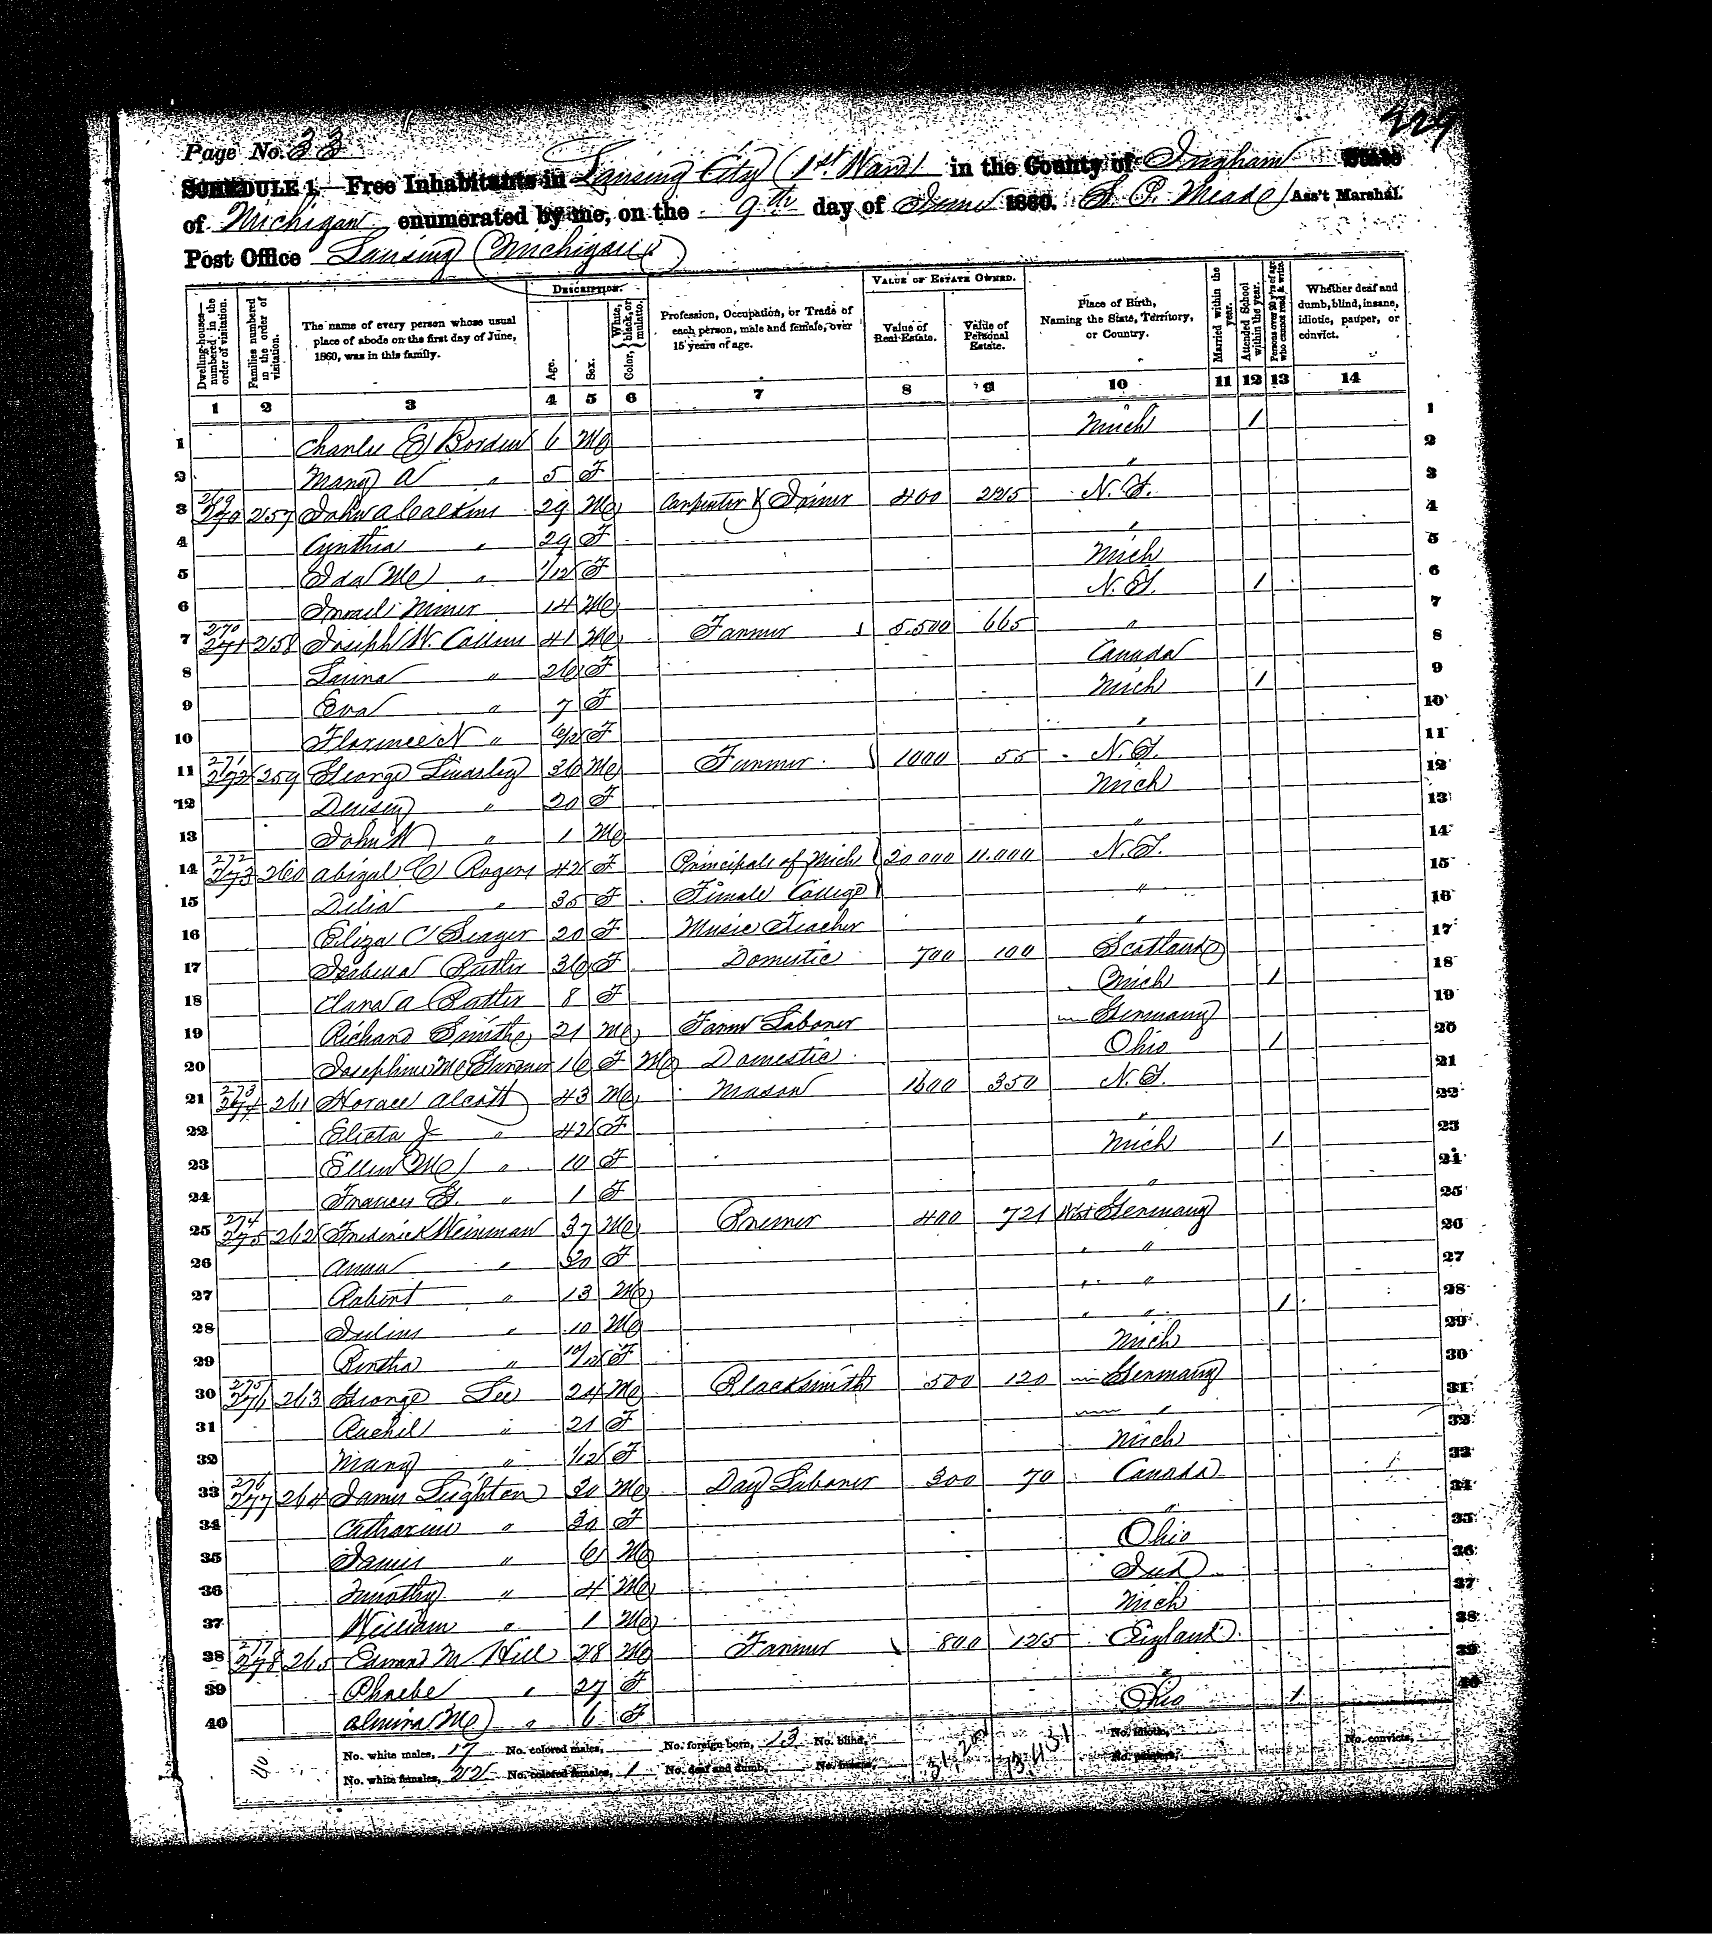 429
Page No. 33
SCHEDULE 1.—Free Inhabitants in Lansing City (1st Ward) in the County of Ingham State
of Michigan enumerated by me, on the 9th day of June 1860. Ass't Marshal.
Post Office Lansing (Michigan)
Dwelling-houses—numbered in the order of visitation.
Families numbered in the order of visitation.
The name of every person whose usual place of abode on the first day of June, 1860, was in this family.
DESCRIPTION.
Age.
Sex.
Color, White, black, or mulatto.
Profession, Occupation, or Trade of each person, male and female, over 15 years of age.
VALUE OF ESTATE OWNED.
Value of Real Estate.
Value of Personal Estate.
Place of Birth, Naming the State, Territory, or Country.
Married within the year.
Attended School within the year.
Persons over 20 y'rs of age who cannot read & write.
Whether deaf and dumb, blind, insane, idiotic, pauper, or convict.
1 2 3 4 5 6 7 8 9 10 11 12 13 14
1 Charles E Borden 6 M Mich 1 1
2 Mary A " 5 F " 2
3 269 270 257 John A Calkins 29 M Carpenter & Joiner 400 225 N.Y. 3
4 Cynthia " 29 F " 4
5 Ida M " 1/12 F Mich 5
6 Miner 14 M N.Y. 1 6
7 270 271 258 Joseph W. 41 M Farmer 5.500 665 " 7
8 " 26 F Canada 8
9 Eva " 7 F Mich 1 9
10 Florence N " 6/12 F " 10
11 271 272 259 George Lindsley 36 M Farmer 1000 55 N.Y. 11
12 " 20 F Mich 12
13 John W " 1 M " 13
14 272 273 260 Abigal C Rogers 42 F Principals of Mich 20 000 11.000 N.Y. 14
15 Delia " 35 F Female College " 15
16 Eliza C Seager 20 F Music Teacher " 16
17 36 F Domestic 700 100 Scotland 17
18 Clara A 8 F Mich 1 18
19 Richard Smith 21 M Farm Laborer Germany 19
20 Josephine 16 F M Domestic Ohio 1 20
21 273 274 261 Horace Alcott 43 M Mason 1600 350 N.Y. 21
22 Electa J " 42 F " 22
23 Ellen M " 10 F Mich 1 23
24 Frances G. " 1 F " 24
25 274 275 262 Frederick Weinman 37 M Brewer 400 721 Germany 25
26 Anna " 30 F " " 26
27 Robert " 13 M " " 27
28 Julius " 10 M " " 1 28
29 Bertha " 10/12 F Mich 29
30 275 276 263 George Lee 24 M Blacksmith 500 120 Germany 30
31 Rachel " 21 F " 31
32 Mary " 1/12 F Mich 32
33 276 277 264 James Leighton 30 M Day Laborer 300 70 Canada 33
34 Catharine " 30 F " 34
35 James " 6 M Ohio 35
36 Timothy " 4 M Ind 36
37 William " 1 M Mich 37
38 277 278 265 M Hill 28 M Farmer 800 125 England 38
39 Phoebe " 27 F " 39
40 Almira M " 6 F Ohio 1 40
No. white males, 17 No. colored males, No. foreign born, 13 No. blind, No. idiotic, No. convicts,
No. white females, 22 No. colored females, 1 No. deaf and dumb, No. insane, No. paupers,